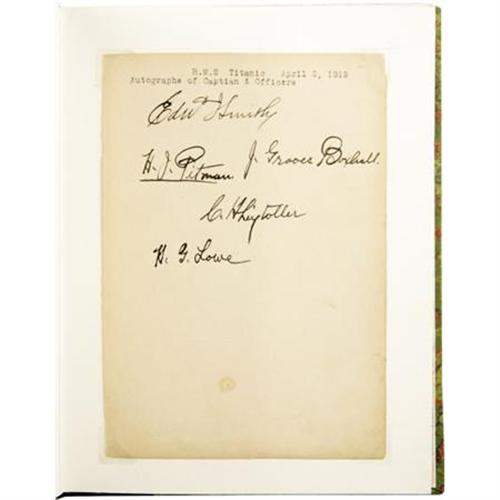 R.M.S Titanic April 2, 1912
Autographs of Captian & Officers
Edwd J Smith
H. J. Pitman. J. Groves Boxhall.
C. H Lightoller
H. G. Lowe